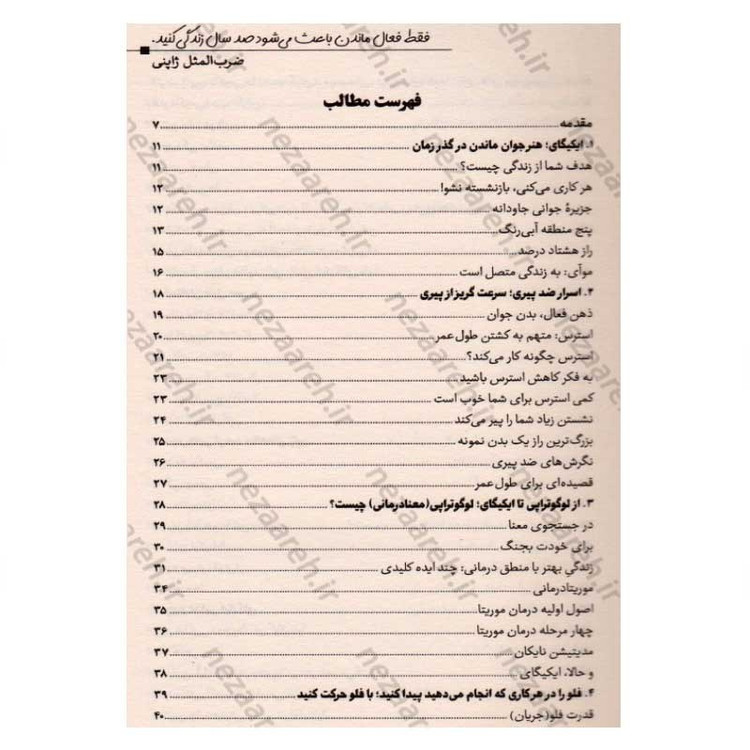 فقط فعال ماندن باعث می‌شود صد سال زندگی کنید.
ضرب‌المثل ژاپنی
فهرست مطالب
مقدمه ۷
۱. ایکیگای؛ هنر جوان ماندن در گذر زمان ۱۱
هدف شما از زندگی چیست؟ ۱۱
هر کاری می‌کنی، بازنشسته نشو! ۱۲
جزیرهٔ جوانی جاودانه ۱۲
پنج منطقه آبی‌رنگ ۱۳
راز هشتاد درصد ۱۵
موآی: به زندگی متصل است ۱۶
۲. اسرار ضد پیری؛ سرعت گریز از پیری ۱۸
ذهن فعال، بدن جوان ۱۹
استرس: متهم به کشتن طول عمر ۲۰
استرس چگونه کار می‌کند؟ ۲۱
به فکر کاهش استرس باشید ۲۳
کمی استرس برای شما خوب است ۲۳
نشستن زیاد شما را پیر می‌کند ۲۴
بزرگ‌ترین راز یک بدن نمونه ۲۵
نگرش‌های ضد پیری ۲۶
قصیده‌ای برای طول عمر ۲۷
۳. از لوگوتراپی تا ایکیگای؛ لوگوتراپی (معنادرمانی) چیست؟ ۲۸
در جستجوی معنا ۲۹
برای خودت بجنگ ۳۰
زندگیِ بهتر با منطق درمانی؛ چند ایده کلیدی ۳۱
موریتادرمانی ۳۴
اصول اولیه درمان موریتا ۳۵
چهار مرحله درمان موریتا ۳۶
مدیتیشن نایکان ۳۷
و حالا، ایکیگای ۳۸
۴. فلو را در هر کاری که انجام می‌دهید پیدا کنید؛ با فلو حرکت کنید ۳۹
قدرت فلو (جریان) ۴۰
nezaareh.ir